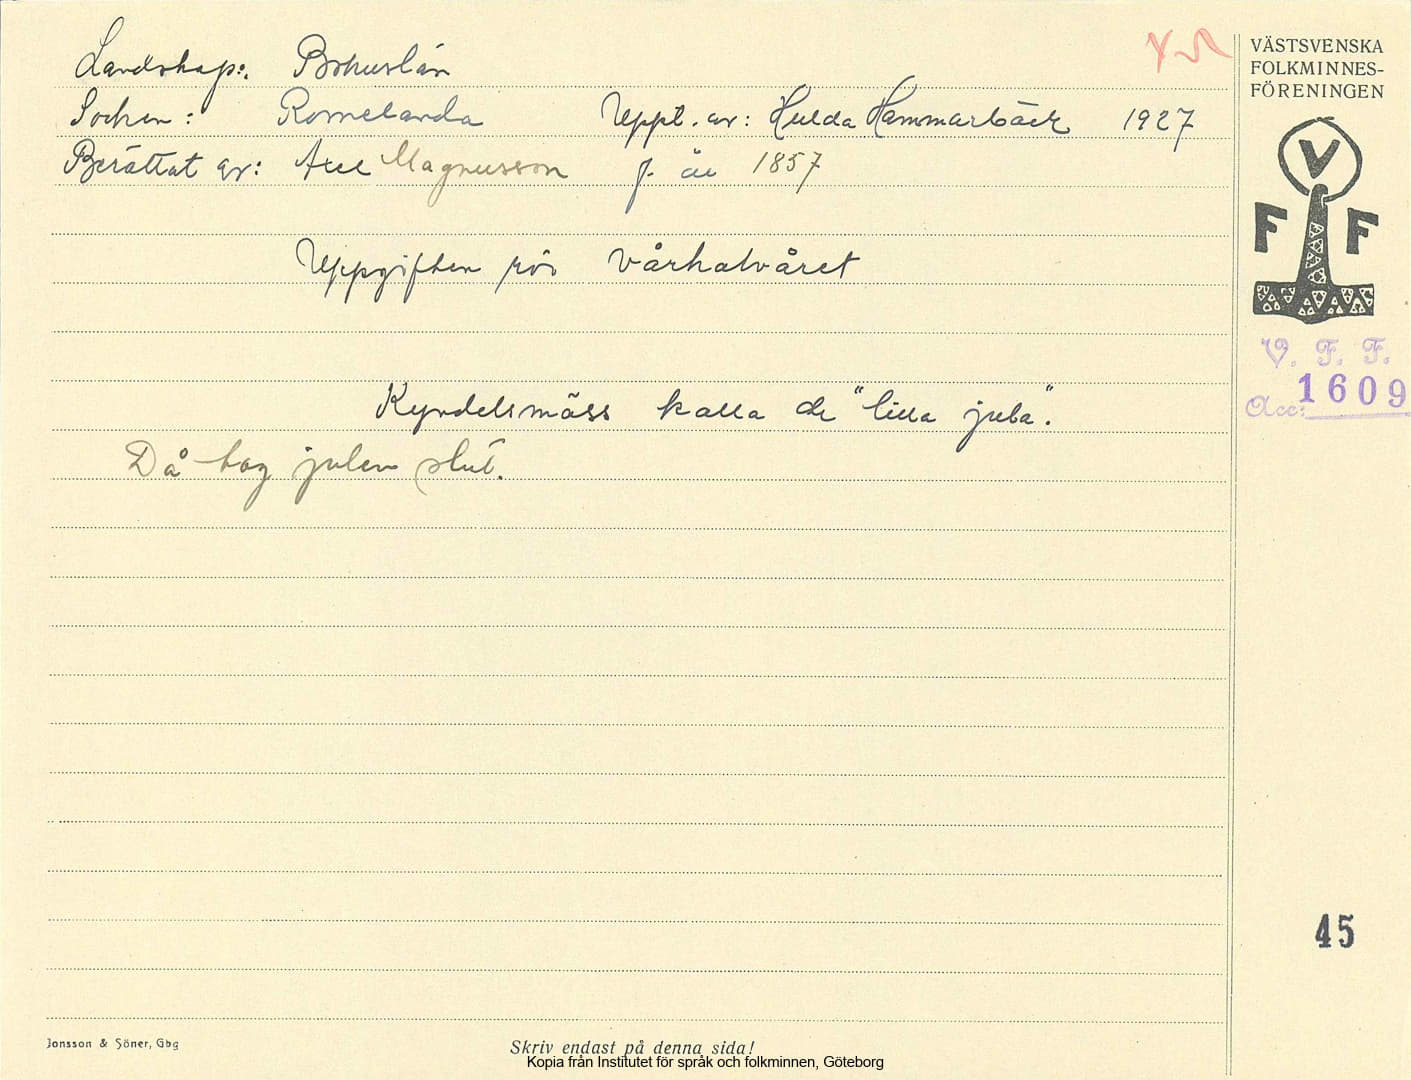 Landskap: Bohuslän
Socken: Romelanda Uppt. av: Hulda Hammarbäck 1927
Berättat av: Axel Magnusson f. år 1857
Uppgiften rör vårhalvåret
Kyndelsmäss kalla de "lilla jula".
Då tog julen slut.
VÄSTSVENSKA
FOLKMINNES-
FÖRENINGEN
V
F F
V. F. F.
Acc: 1609
45
Jonsson & Söner, Gbg
Skriv endast på denna sida!
Kopia från Institutet för språk och folkminnen, Göteborg